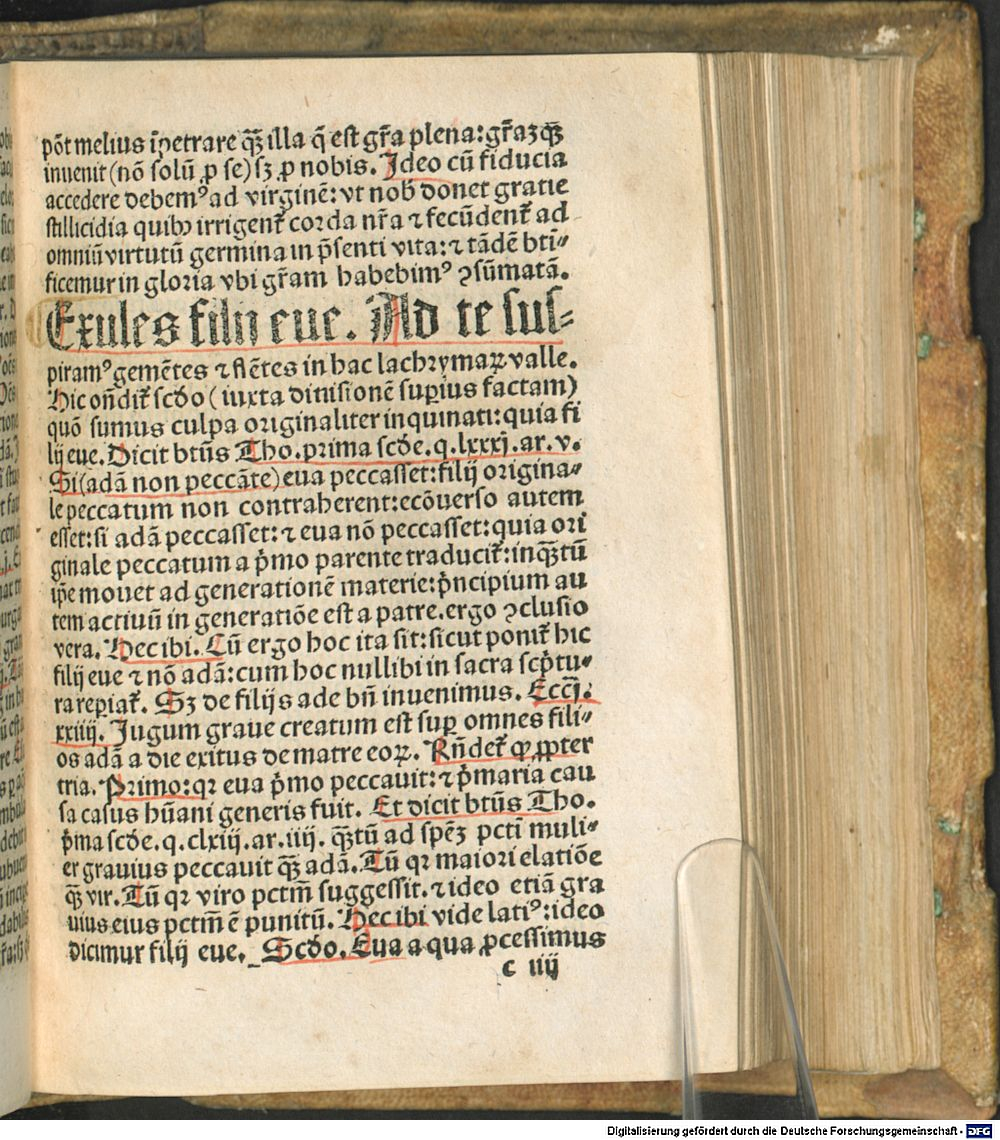 põt melius ĩpetrare q̃ꝫ illa q̃ est gr̃a plena: gr̃aꝫ q̃ꝫ
inuenit (nõ solũ ꝓ se) sꝫ ꝓ nobis. Ideo cũ fiducia
accedere debemꝰ ad virginẽ: vt nob̃ donet gratie
stillicidia quibꝰ irrigent̃ corda nr̃a ⁊ fecũdent̃ ad
omniũ virtutũ germina in p̃senti vita: ⁊ tãdẽ bti⸗
ficemur in gloria vbi gr̃am habebimꝰ ꝯsũmatã.
Exules filij eue. Ad te sus⸗
piramꝰ gemẽtes ⁊ flẽtes in hac lachrymaꝝ valle.
Hic oñdit̃ scd̃o (iuxta diuisionẽ suꝑius factam)
quõ sumus culpa originaliter inquinati: quia fi
lij eue. Dicit btũs Tho. prima scd̃e. q. lxxxj. ar. v.
Si (adã non peccãte) eua peccasset: filij origina⸗
le peccatum non contraherent: ecõuerso autem
esset: si adã peccasset: ⁊ eua nõ peccasset: quia ori
ginale peccatum a p̃mo parente traducit̃: inq̃ꝫtũ
ip̃e mouet ad generationẽ materie: p̃ncipium au
tem actiuũ in generatiõe est a patre. ergo ꝯclusio
vera. Hec ibi. Cũ ergo hoc ita sit: sicut ponit̃ hic
filij eue ⁊ nõ adã: cum hoc nullibi in sacra scp̃tu⸗
ra reꝑiat̃. Sꝫ de filijs ade bñ inuenimus. Ecc̃j.
xxiiij. Jugum graue creatum est suꝑ omnes fili⸗
os adã a die exitus de matre eoꝝ. Rñdet̃ ꝙ ꝓpter
tria. Primo: qꝛ eua p̃mo peccauit: ⁊ p̃maria cau
sa casus hũani generis fuit. Et dicit btũs Tho.
p̃ma scd̃e. q. clxiij. ar. iiij. q̃ꝫtũ ad spẽꝫ pcti muli⸗
er grauius peccauit q̃ꝫ adã. Tũ qꝛ maiori elatiõe
q̃ꝫ vir. Tũ qꝛ viro pctm̃ suggessit. ⁊ ideo etiã gra
uius eius pctm̃ ẽ punitũ. Hec ibi vide latiꝰ: ideo
dicimur filij eue. Scd̃o. Eua a qua ꝓcessimus
c iiij
Digitalisierung gefördert durch die Deutsche Forschungsgemeinschaft - DFG